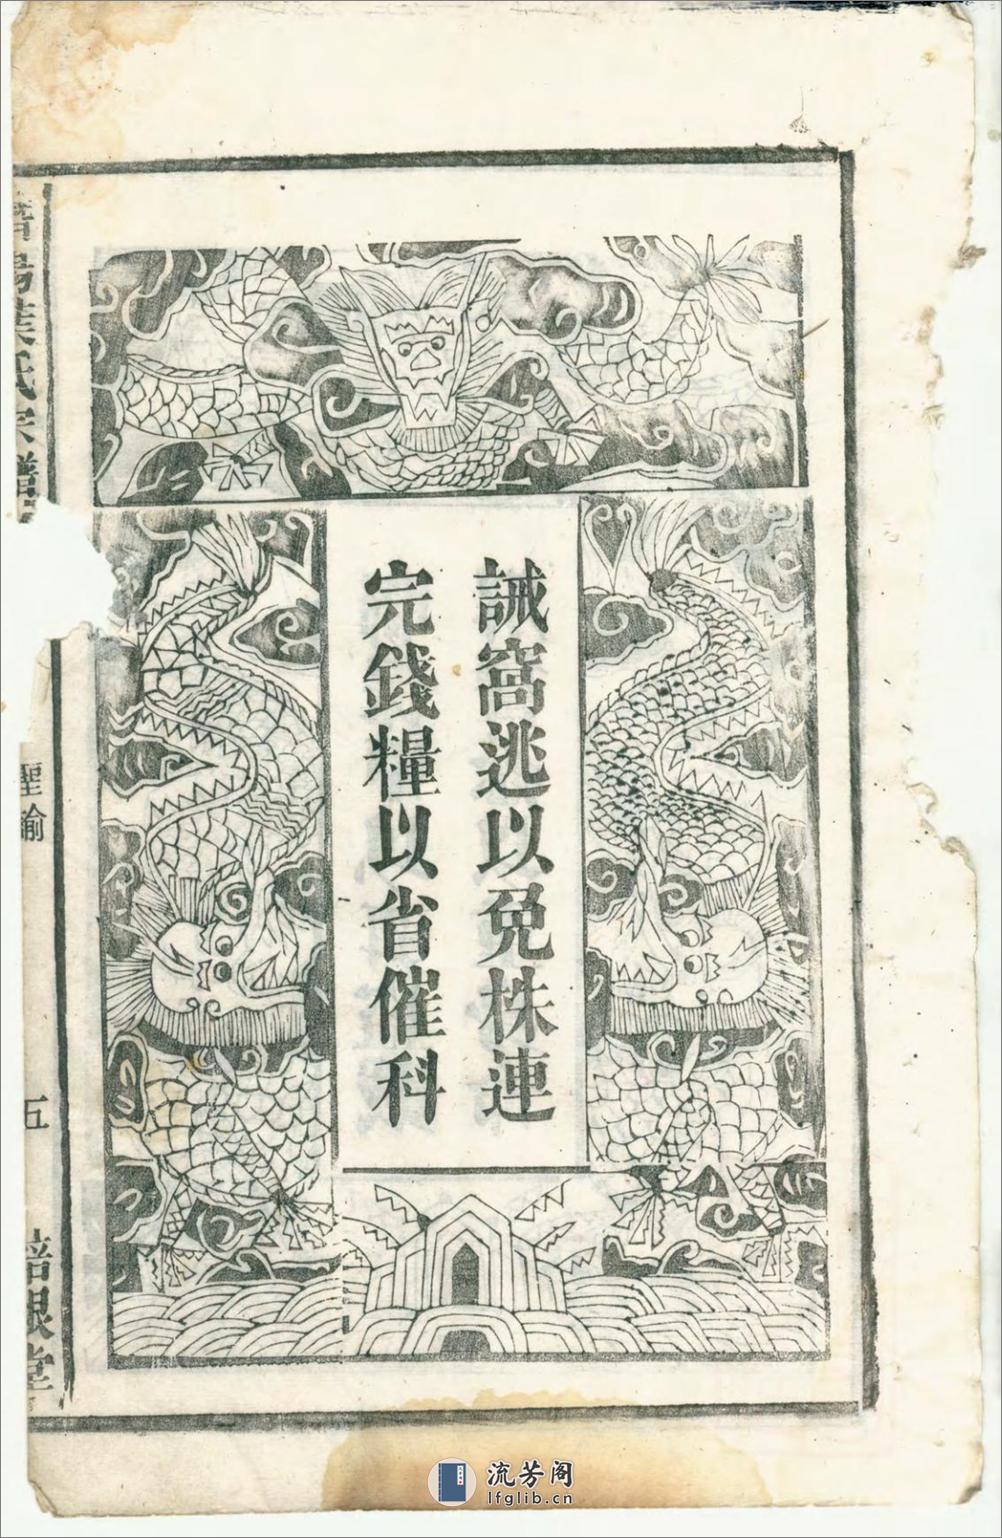 誡窩逃以免株連
完錢糧以省催科
葉氏宗譜
聖諭
五
培根堂
流芳阁
lfglib.cn